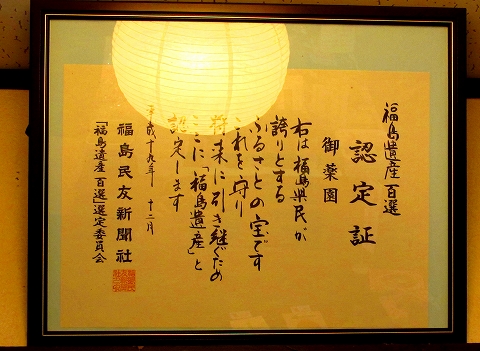 福島遺産百選
認定証
御薬園
右は福島県民が
誇りとする
ふるさとの宝です
これを守り
将来に引き継ぐため
ここに「福島遺産」と
認定します
平成十九年十二月
福島民友新聞社
「福島遺産百選」選定委員会